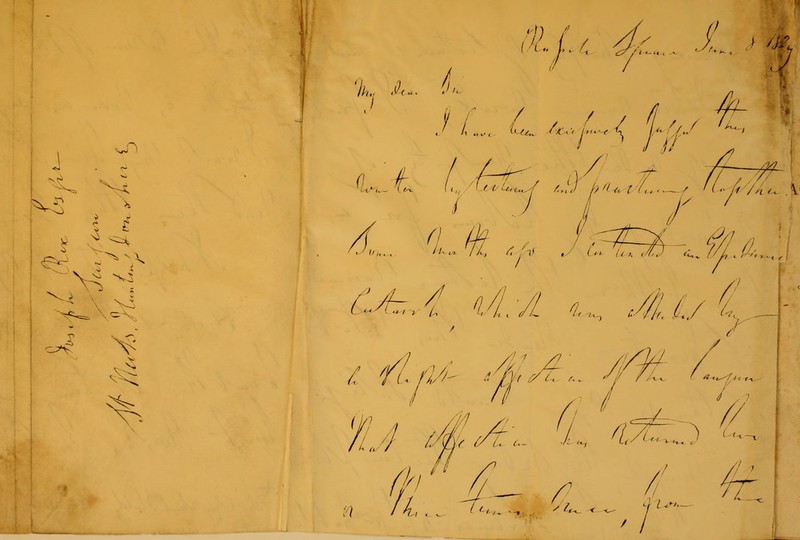 Joseph Rix Esqre
Surgeon
St Neots, Huntingdonshire
Russell Square June 8 1829
My dear Sir
I have been excessively fagged this
winter by lecturing and practising together.
Some months ago I contracted an Epidemic
Catarrh, which was attended by
a slight affection of the larynx
That affection has returned
a three times since, from the